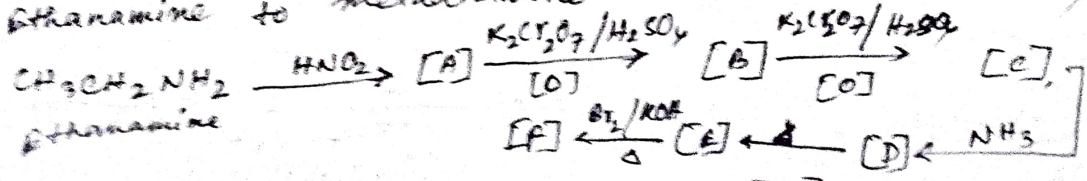 Ethanamine to
CH₃CH₂NH₂ —HNO₂→ [A] —K₂Cr₂O₇/H₂SO₄ [O]→ [B] —K₂Cr₂O₇/H₂SO₄ [O]→ [C]
Ethanamine [F] ←Br₂/KOH Δ— [E] ←Δ— [D] ← NH₃